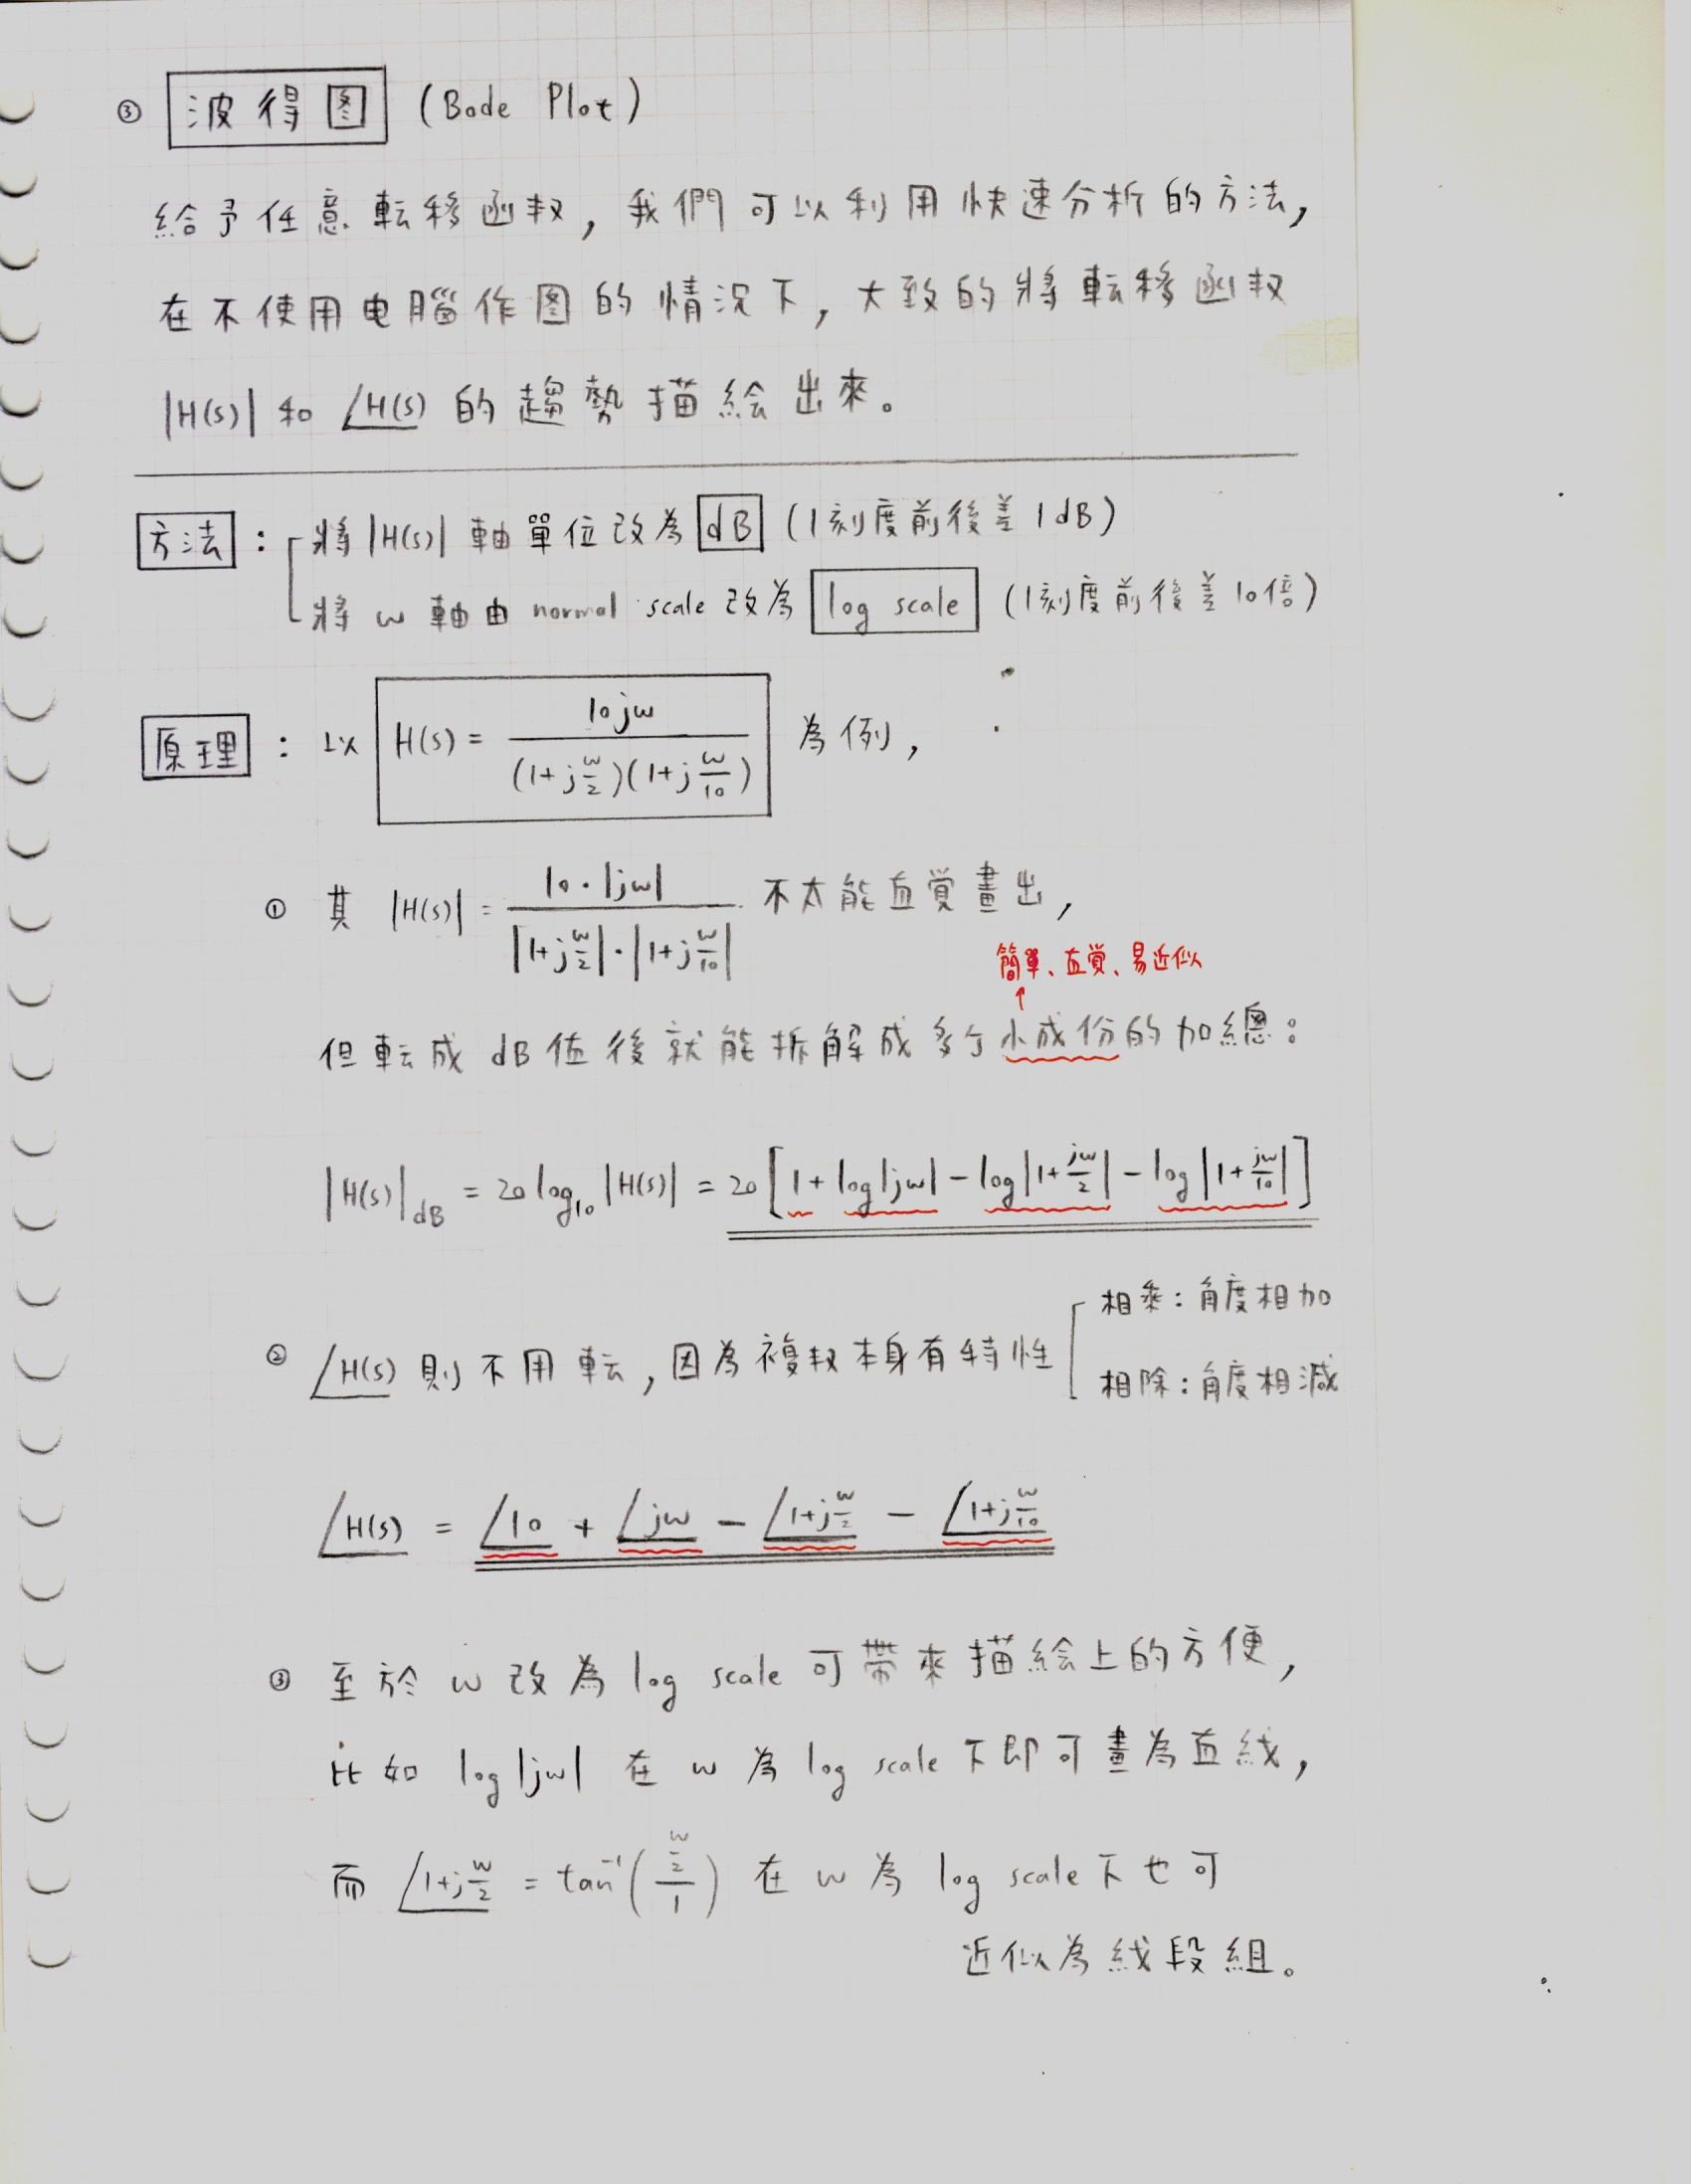 ③ 波得図 (Bode Plot)
給予任意転移函数，我們可以利用快速分析的方法，
在不使用电腦作図的情況下，大致的將転移函数
|H(s)| 和 ∠H(s) 的趨勢描絵出來。
方法： 將 |H(s)| 軸單位改為 dB (1刻度前後差 1dB)
將 w 軸由 normal scale 改為 log scale (1刻度前後差10倍)
原理： 以 H(s) = 10jw / (1+j w/2)(1+j w/10) 為例，
① 其 |H(s)| = 10·|jw| / |1+j w/2|·|1+j w/10| 不太能直覚畫出，
簡單、直覚、易近似
↑
但転成 dB 值後就能拆解成多个小成份的加總：
|H(s)|dB = 20 log₁₀ |H(s)| = 20 [1 + log|jw| - log|1+ jw/2| - log|1+ jw/10|]
② ∠H(s) 則不用転，因為複数本身有特性
相乘：角度相加
相除：角度相減
∠H(s) = ∠10 + ∠jw - ∠1+j w/2 - ∠1+j w/10
③ 至於 w 改為 log scale 可帶來描絵上的方便，
比如 log|jw| 在 w 為 log scale 下即可畫為直線，
而 ∠1+j w/2 = tan⁻¹( w/2 / 1 ) 在 w 為 log scale 下也可
近似為線段組。